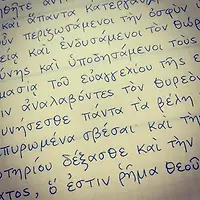 θῆτε ἀντ
καὶ ἅπαντα κατεργασ
οὖν περιζωσάμενοι τὴν ὀσφὺν
είᾳ καὶ ἐνδυσάμενοι τὸν θώρ
ύνης καὶ ὑποδησάμενοι τοὺς
μασίᾳ τοῦ εὐαγγελίου τῆς ε
ιν ἀναλαβόντες τὸν θυρεὸ
υνήσεσθε πάντα τὰ βέλη
πυρωμένα σβέσαι· καὶ τὴ
τηρίου δέξασθε καὶ τὴν
ατος, ὅ ἐστιν ῥῆμα θεοῦ